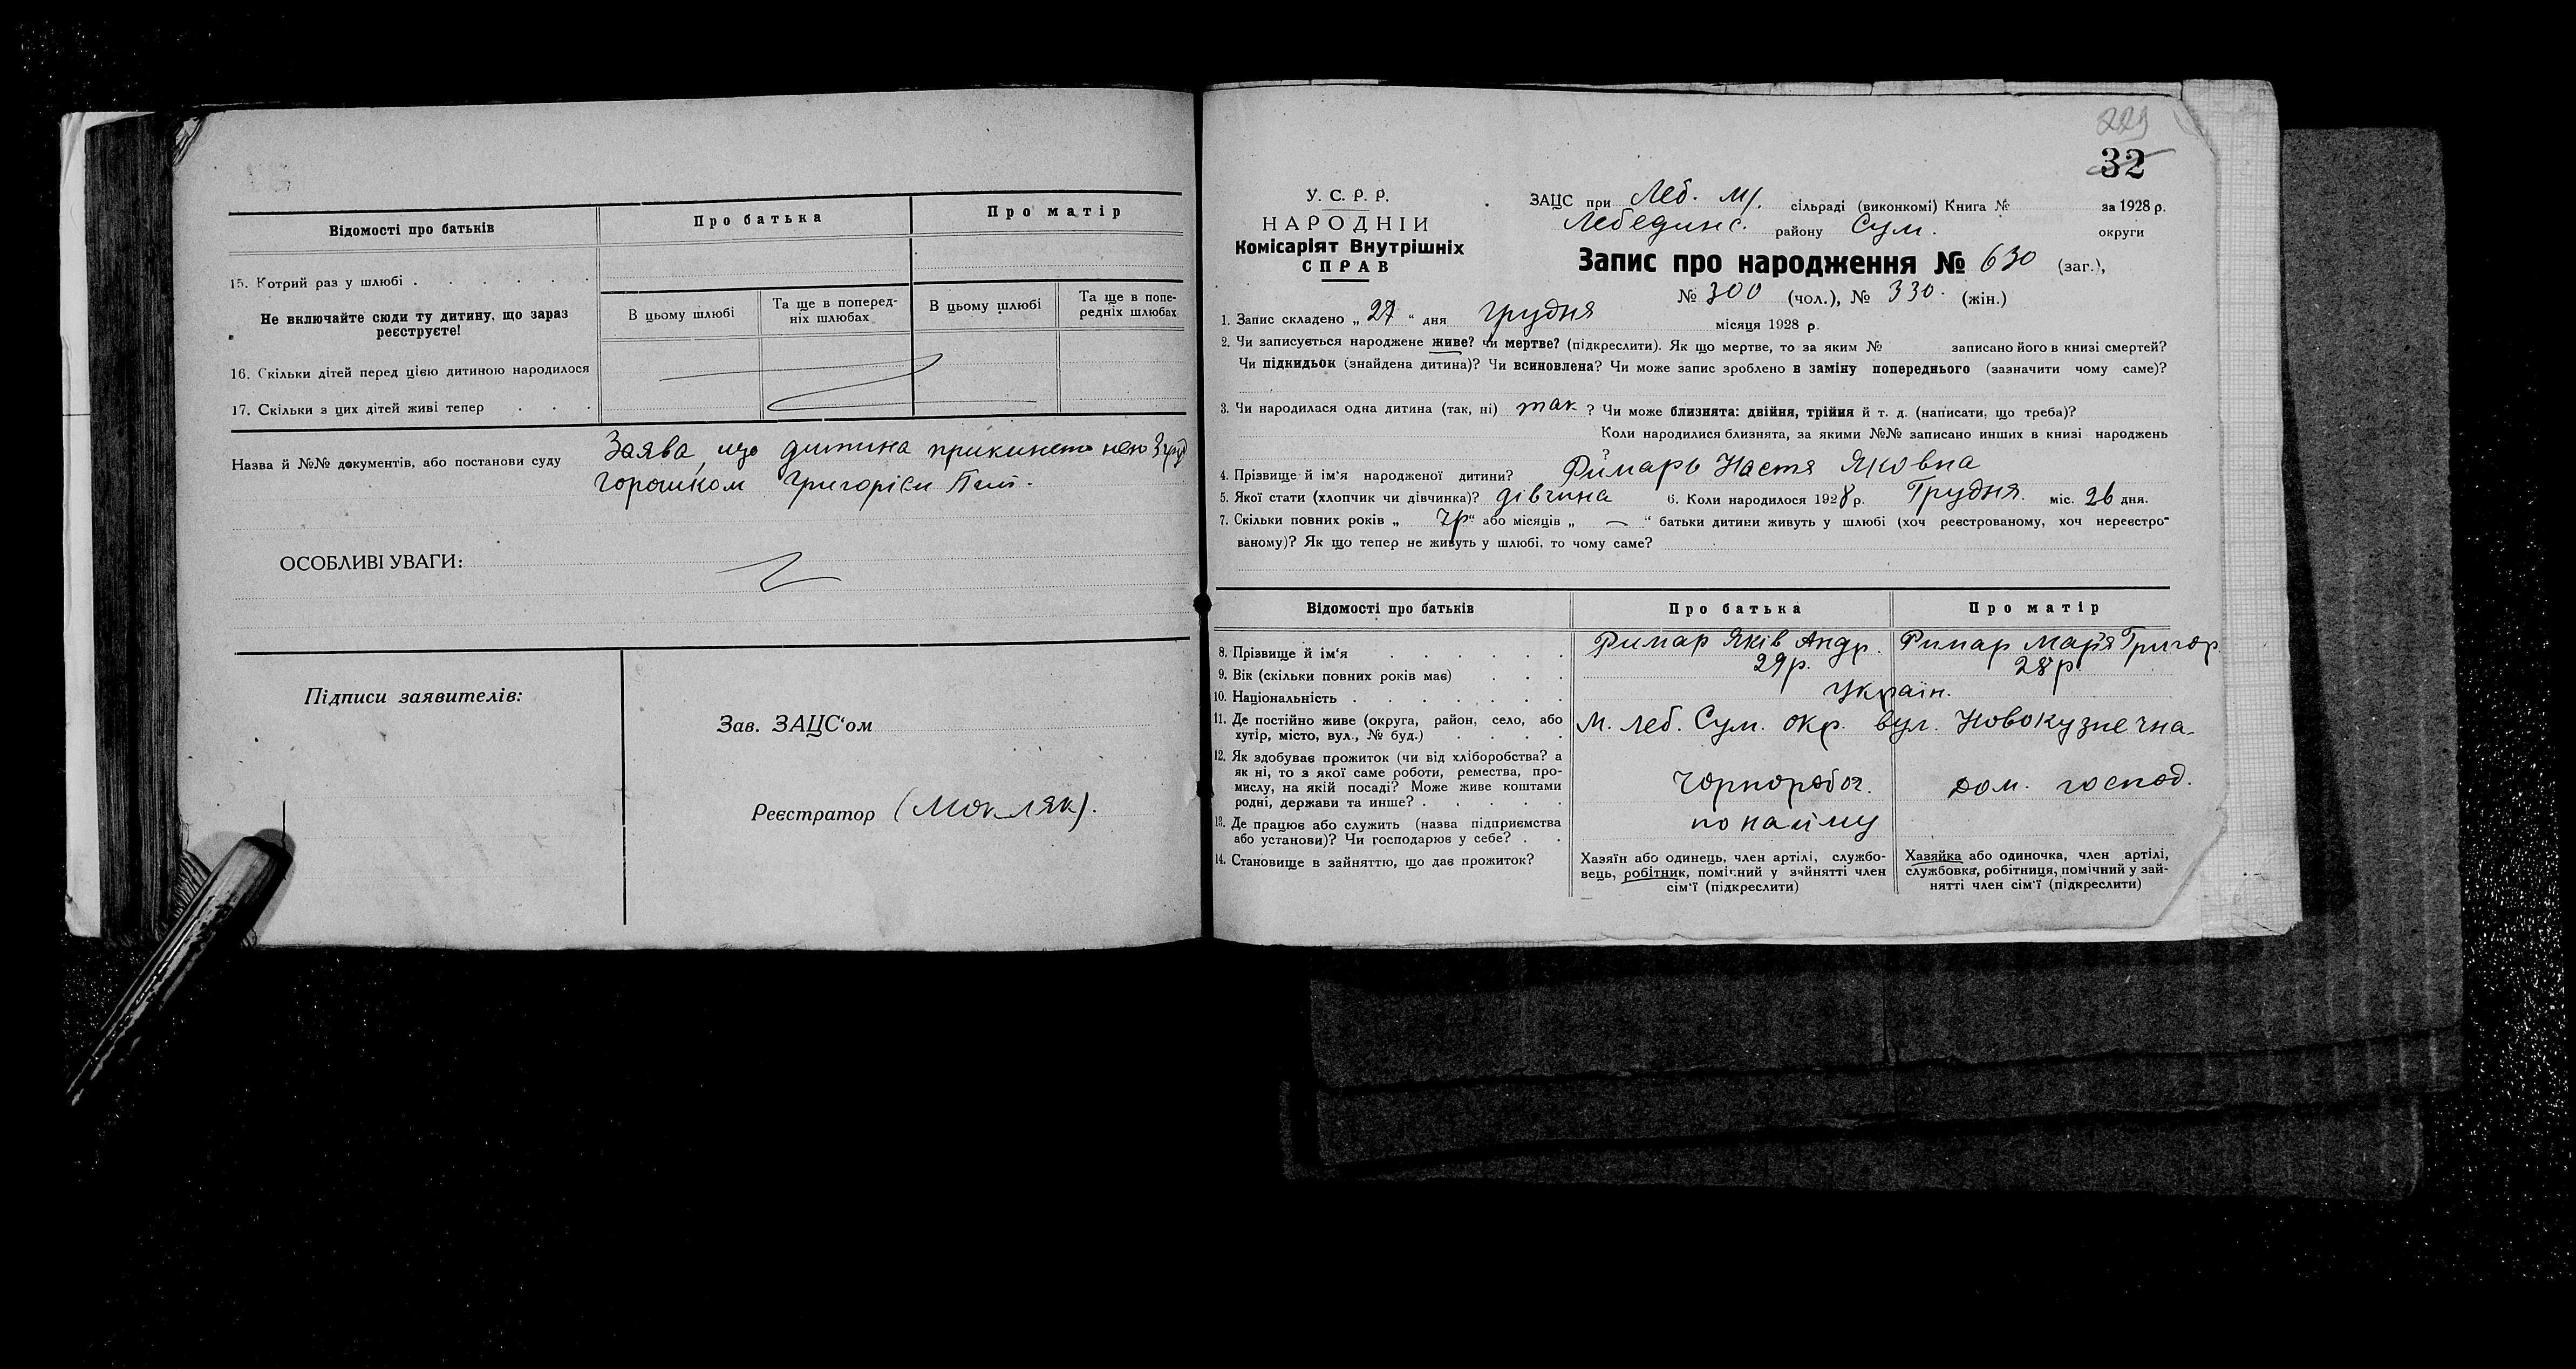 Відомості про батьків
Про батька
Про матір
15. Котрий раз у шлюбі
Не включайте сюди ту дитину, що зараз
реєструєте!
В цьому шлюбі
Та ще в поперед-
ніх шлюбах
В цьому шлюбі
Та ще в попе-
редніх шлюбах
16. Скільки дітей перед цією дитиною народилося
17. Скільки з цих дітей живі тепер
Назва й №№ документів, або постанови суду Заява, що дитина прикинета
Горошком Григорієм
ОСОБЛИВІ УВАГИ:
Підписи заявителів:
Зав. ЗАЦС‘ом
Реєстратор (Мокляк).
229
32
У. С. Р. Р.
НАРОДНІЙ
Комісаріят Внутрішніх
СПРАВ
ЗАЦС при Леб. м/. сільраді (виконкомі) Книга № за 1928 р.
Лебединс. району Сум. округи
Запис про народження № 630 (заг.),
№ 300 (чол.), № 330. (жін.)
1. Запис складено „ 27 “ дня грудня місяця 1928 р.
2. Чи записується народжене живе? чи мертве? (підкреслити). Як що мертве, то за яким № записано його в книзі смертей?
Чи підкидьок (знайдена дитина)? Чи всиновлена? Чи може запис зроблено в заміну попереднього (зазначити чому саме)?
3. Чи народилася одна дитина (так, ні) так ? Чи може близнята: двійня, трійня й т. д. (написати, що треба)?
Коли народилися близнята, за якими №№ записано инших в книзі народжень
?
4. Прізвище й ім‘я народженої дитини? Римарь Настя Яковна
5. Якої стати (хлопчик чи дівчинка)? дівчина 6. Коли народилося 1928 р. Грудня. міс. 26 дня.
7. Скільки повних років „ 7р “ або місяців „ — “ батьки дитини живуть у шлюбі (хоч реєстрованому, хоч нереєстро-
ваному)? Як що тепер не живуть у шлюбі, то чому саме?
Відомості про батьків
Про батька
Про матір
8. Прізвище й ім‘я
Римар Яків Андр.
Римар Марія Григор.
9. Вік (скільки повних років має)
29р.
28р.
10. Національність
Україн.
11. Де постійно живе (округа, район, село, або
хутір, місто, вул., № буд.)
м. Леб. Сум. окр. вул. Новокузнечна
12. Як здобуває прожиток (чи від хліборобства? а
як ні, то з якої саме роботи, ремества, про-
мислу, на якій посаді? Може живе коштами
родні, держави та инше?
Чорноробоч.
дом. господ.
13. Де працює або служить (назва підприємства
або установи)? Чи господарює у себе?
по найму
14. Становище в зайняттю, що дає прожиток?
Хазяїн або одинець, член артілі, службо-
вець, робітник, помічний у зайнятті член
сім‘ї (підкреслити)
Хазяйка або одиночка, член артілі,
службовка, робітниця, помічний у зай-
нятті член сім‘ї (підкреслити)